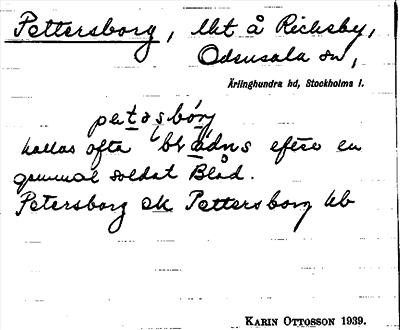 Pettersborg, lht å Rickeby,
Odensala sn,
Ärlinghundra hd, Stockholms l.
kallas ofta blådns efter en
gammal soldat Blåd.
Petersborg ek Pettersborg kb
KARIN OTTOSSON 1939.